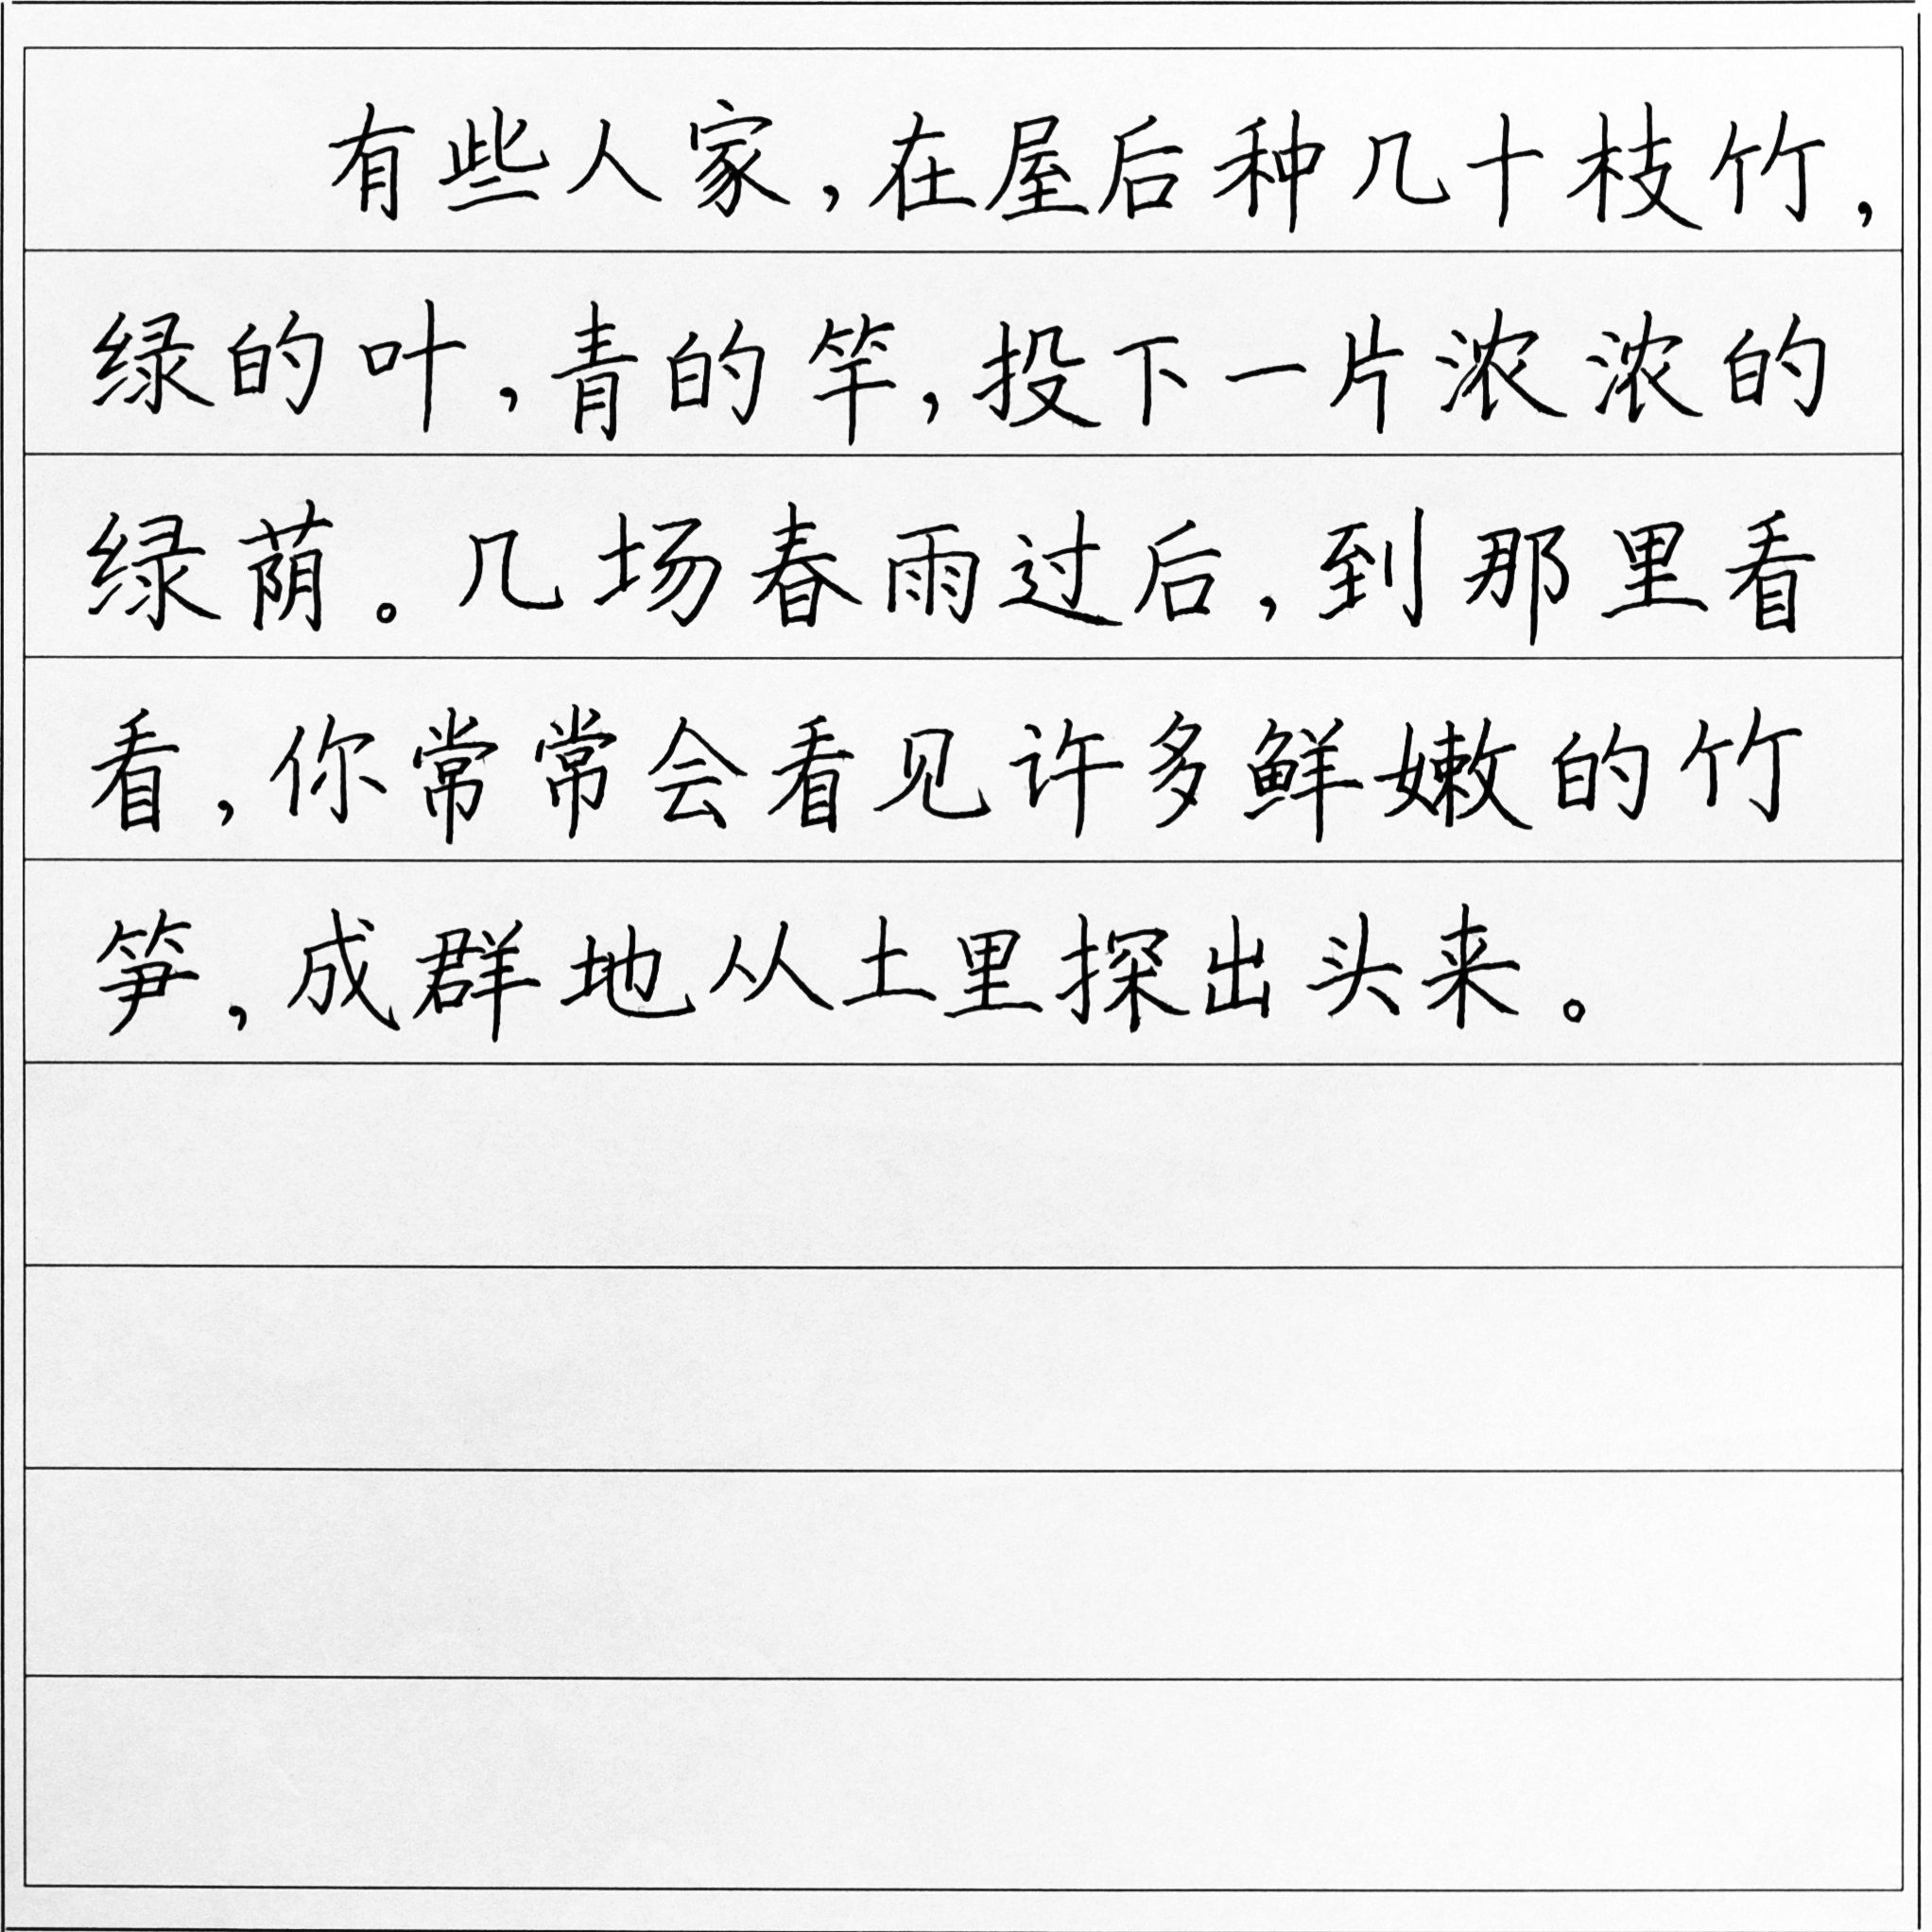 有些人家,在屋后种几十枝竹,
绿的叶,青的竿,投下一片浓浓的
绿荫。几场春雨过后,到那里看
看,你常常会看见许多鲜嫩的竹
笋,成群地从土里探出头来。